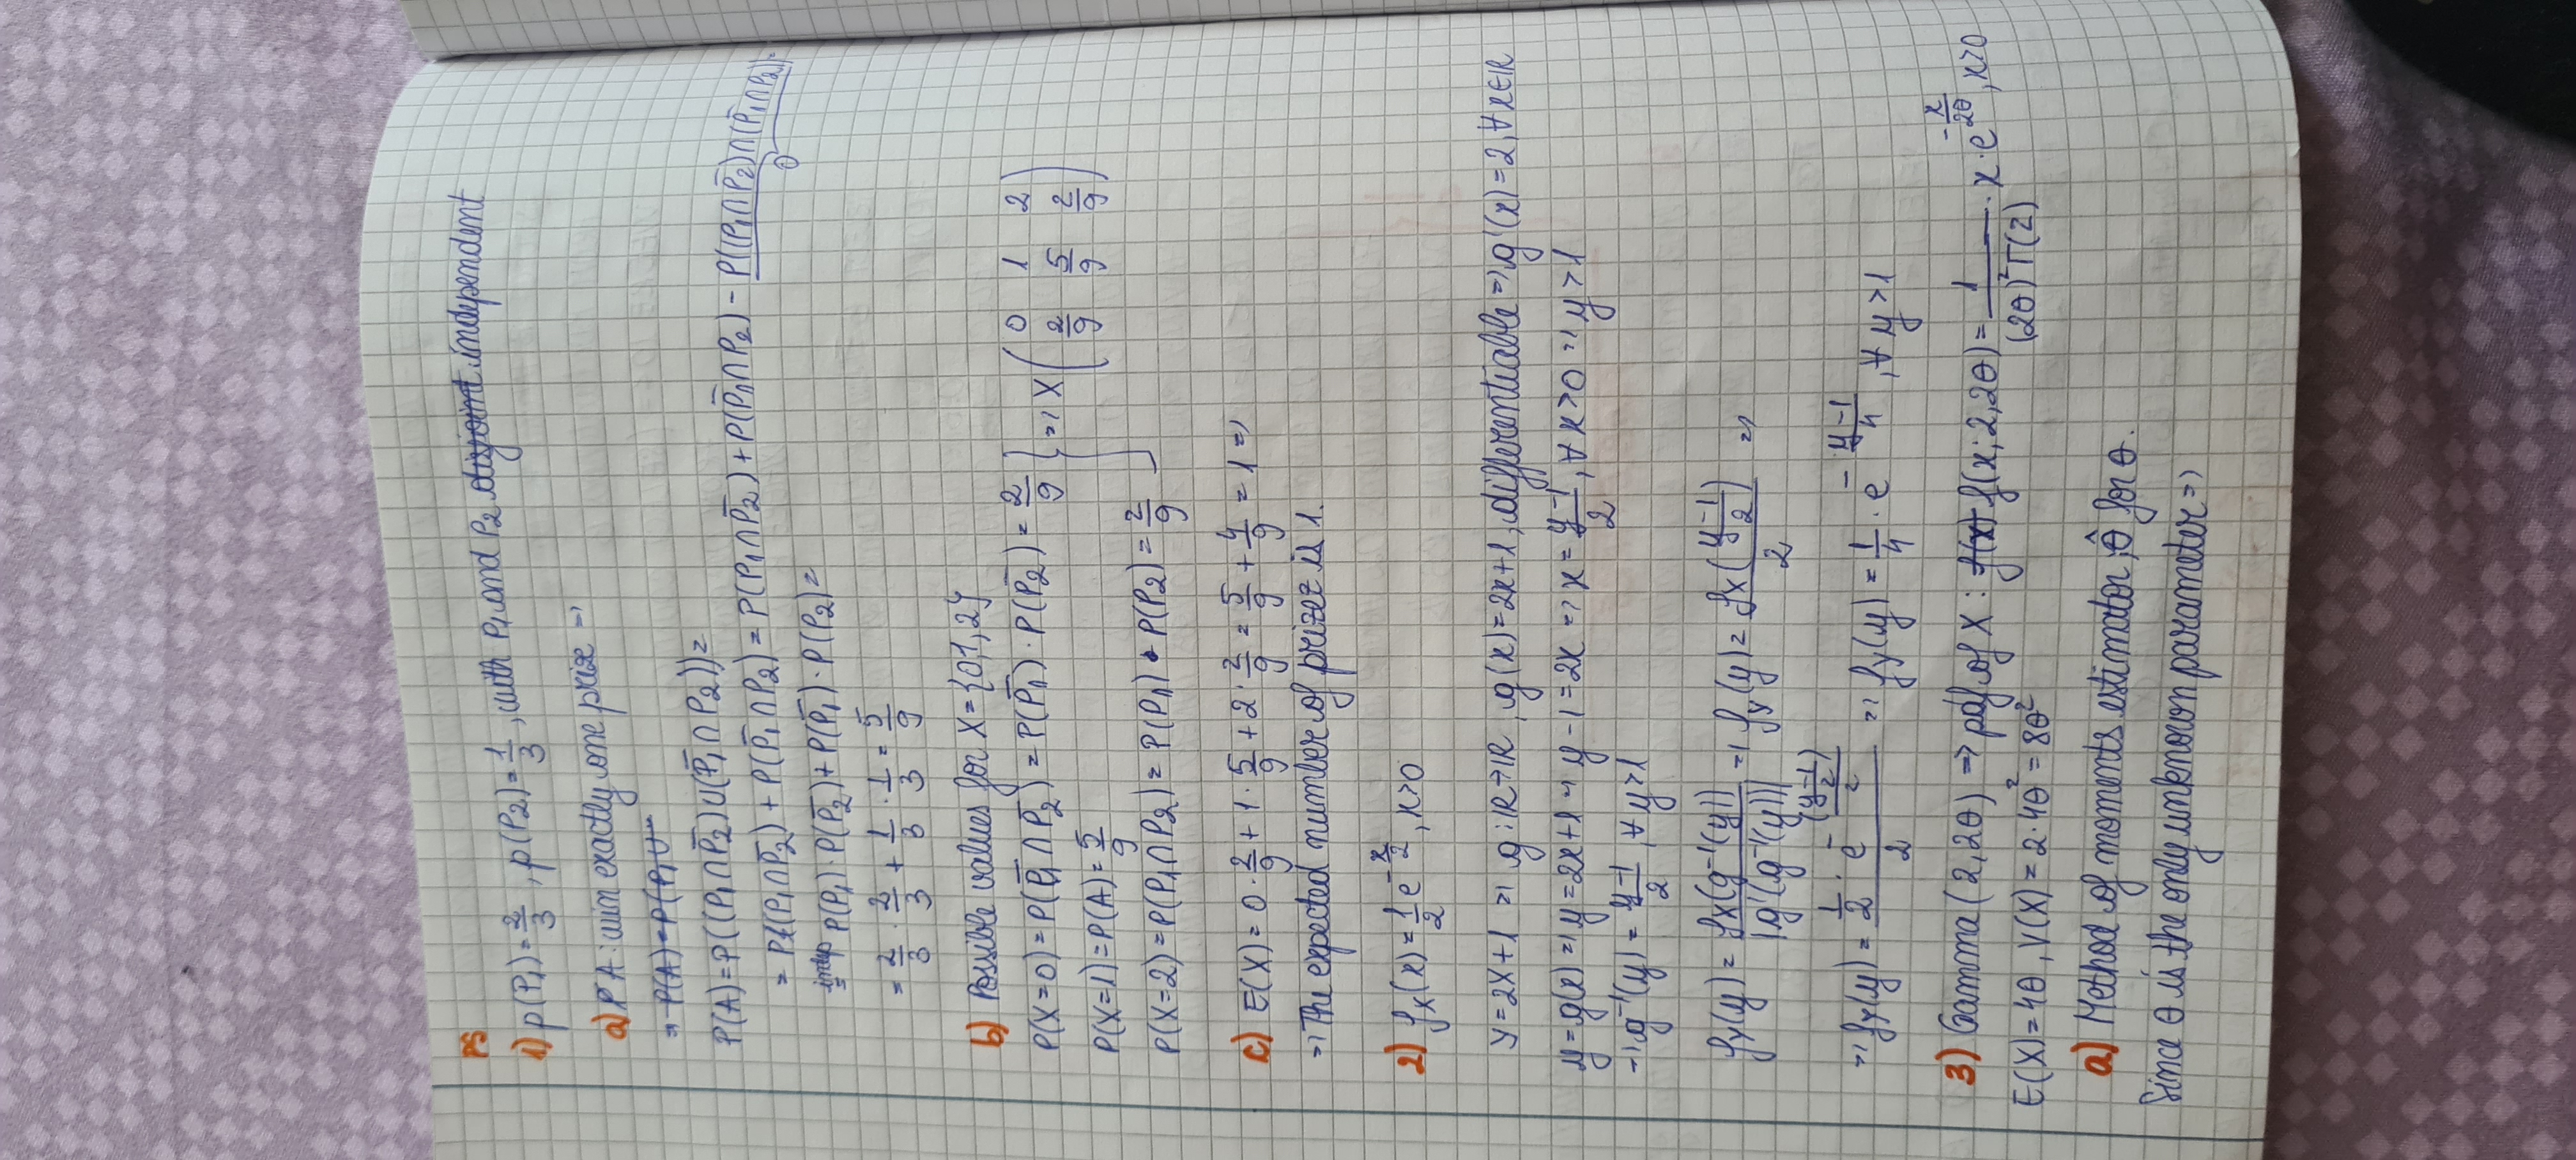 PS
1) p(P₁) = 2/3, p(P₂) = 1/3, with P₁ and P₂ disjoint independent
a) P A: win exactly one prize =>
=> P(A) = P(P₁ ∪
P(A) = P((P₁ ∩ P̄₂) ∪ (P̄₁ ∩ P₂)) =
= P((P₁ ∩ P̄₂) + P(P̄₁ ∩ P₂) = P(P₁ ∩ P̄₂) + P(P̄₁ ∩ P₂) - P((P₁ ∩ P̄₂) ∩ (P̄₁ ∩ P₂)) =
0
indep = P(P₁) · P(P̄₂) + P(P̄₁) · P(P₂) =
= 2/3 · 2/3 + 1/3 · 1/3 = 5/9
b) Possible values for X = {0,1,2}
P(X=0) = P(P̄₁ ∩ P̄₂) = P(P̄₁) · P(P̄₂) = 2/9
P(X=1) = P(A) = 5/9
P(X=2) = P(P₁ ∩ P₂) = P(P₁) · P(P₂) = 2/9
=> X ( 0 1 2
2/9 5/9 2/9 )
c) E(X) = 0 · 2/9 + 1 · 5/9 + 2 · 2/9 = 5/9 + 4/9 = 1 =>
=> The expected number of prizez is 1.
2) f_X(x) = 1/2 e^(-x/2), x>0
Y = 2X+1 => g: ℝ→ℝ, g(x) = 2x+1, differentiable => g'(x) = 2, ∀x∈ℝ
y = g(x) => y = 2x+1 => y-1 = 2x => x = (y-1)/2, ∀x>0 => y>1
=> g⁻¹(y) = (y-1)/2, ∀y>1
f_Y(y) = f_X(g⁻¹(y)) / |g'(g⁻¹(y))| => f_Y(y) = f_X((y-1)/2) / 2 =>
=> f_Y(y) = (1/2 · e^(-((y-1)/2)/2)) / 2 => f_Y(y) = 1/4 · e^(-(y-1)/4), ∀y>1
3) Gamma(2, 2θ) => pdf of X: f(x) f(x; 2, 2θ) = 1/((2θ)²Γ(2)) · x · e^(-x/2θ), x>0
E(X) = 4θ, V(X) = 2·4θ² = 8θ²
a) Method of moments estimator, θ̂ for θ.
Since θ is the only unknown parameter =>